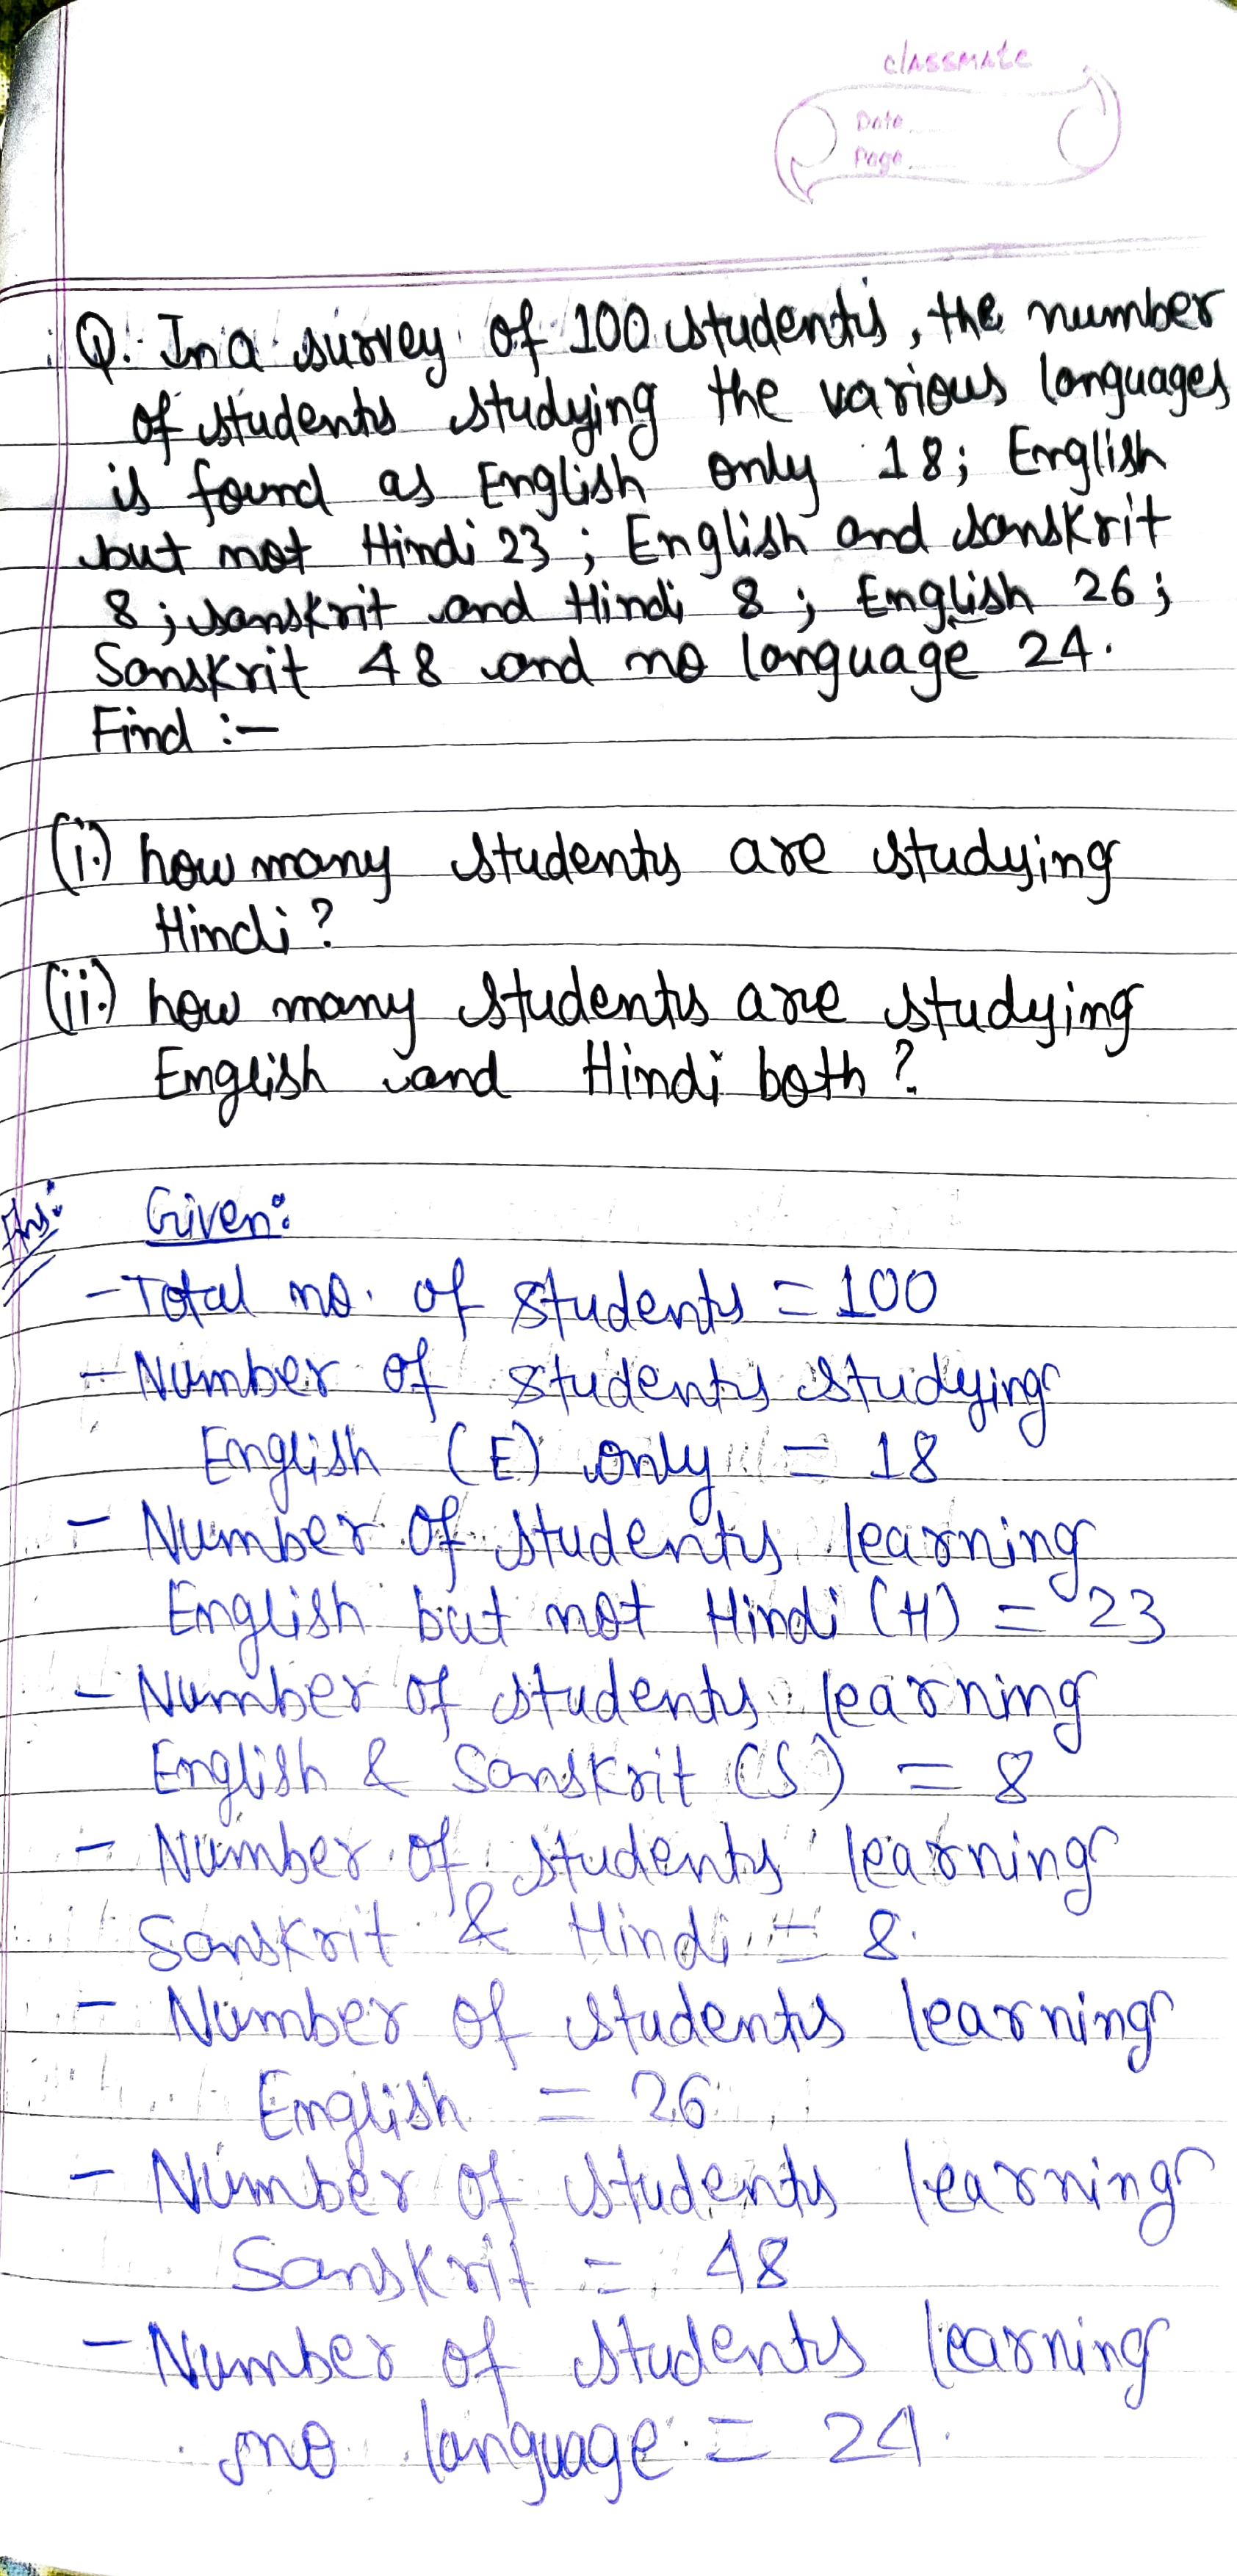 classmate
Date
Page
Q. In a survey of 100 students, the number
of students studying the various languages
is found as English only 18; English
but not Hindi 23; English and Sanskrit
8; Sanskrit and Hindi 8; English 26;
Sanskrit 48 and no language 24.
Find :-
(i.) how many students are studying
Hindi?
(ii.) how many students are studying
English and Hindi both?
Ans: Given:
- Total no. of students = 100
- Number of students studying
English (E) only = 18
- Number of students learning
English but not Hindi (H) = 23
- Number of students learning
English & Sanskrit (S) = 8
- Number of students learning
Sanskrit & Hindi = 8.
- Number of students learning
English = 26
- Number of students learning
Sanskrit = 48
- Number of students learning
no language = 24.